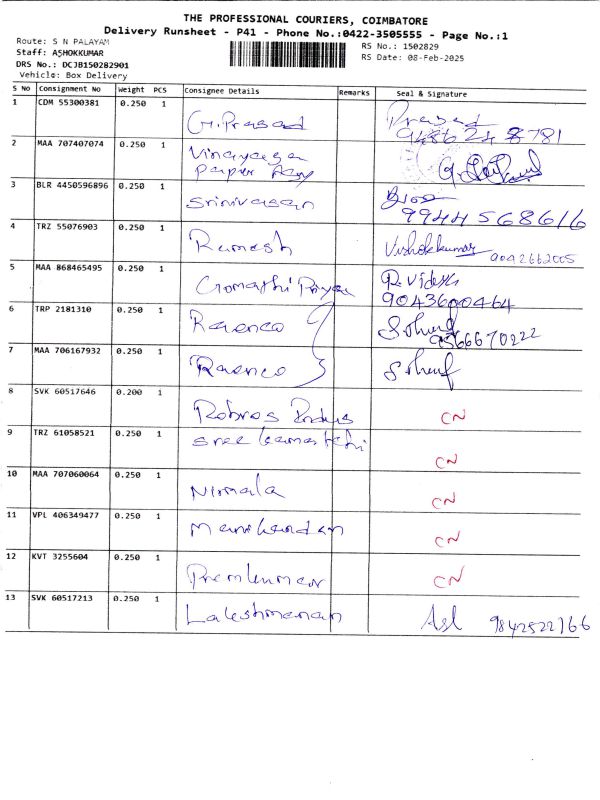 THE PROFESSIONAL COURIERS, COIMBATORE
Delivery Runsheet - P41 - Phone No.:0422-3505555 - Page No.:1
Route: S N PALAYAM
Staff: ASHOKKUMAR
DRS No.: DCJB150282901
Vehicle: Box Delivery
RS No.: 1502829
RS Date: 08-Feb-2025
S No Consignment No Weight PCS Consignee Details Remarks Seal & Signature
1 CDM 55300381 0.250 1 G.Prasad Prasad
2 MAA 707407074 0.250 1 Vinayaga
paper
3 BLR 4450596896 0.250 1 Srinivasan
9944568616
4 TRZ 55076903 0.250 1 Ramesh Vishokkumar
9042662005
5 MAA 868465495 0.250 1 Gomathi Priya R. Vidhya
9043600464
6 TRP 2181310 0.250 1
9566670222
7 MAA 706167932 0.250 1
8 SVK 60517646 0.200 1 CN
9 TRZ 61058521 0.250 1 Sree Kamatchi CN
10 MAA 707060064 0.250 1 Nirmala CN
11 VPL 406349477 0.250 1 Manikandan CN
12 KVT 3255604 0.250 1 Premkumar CN
13 SVK 60517213 0.250 1 Lakshmanan 9842522166